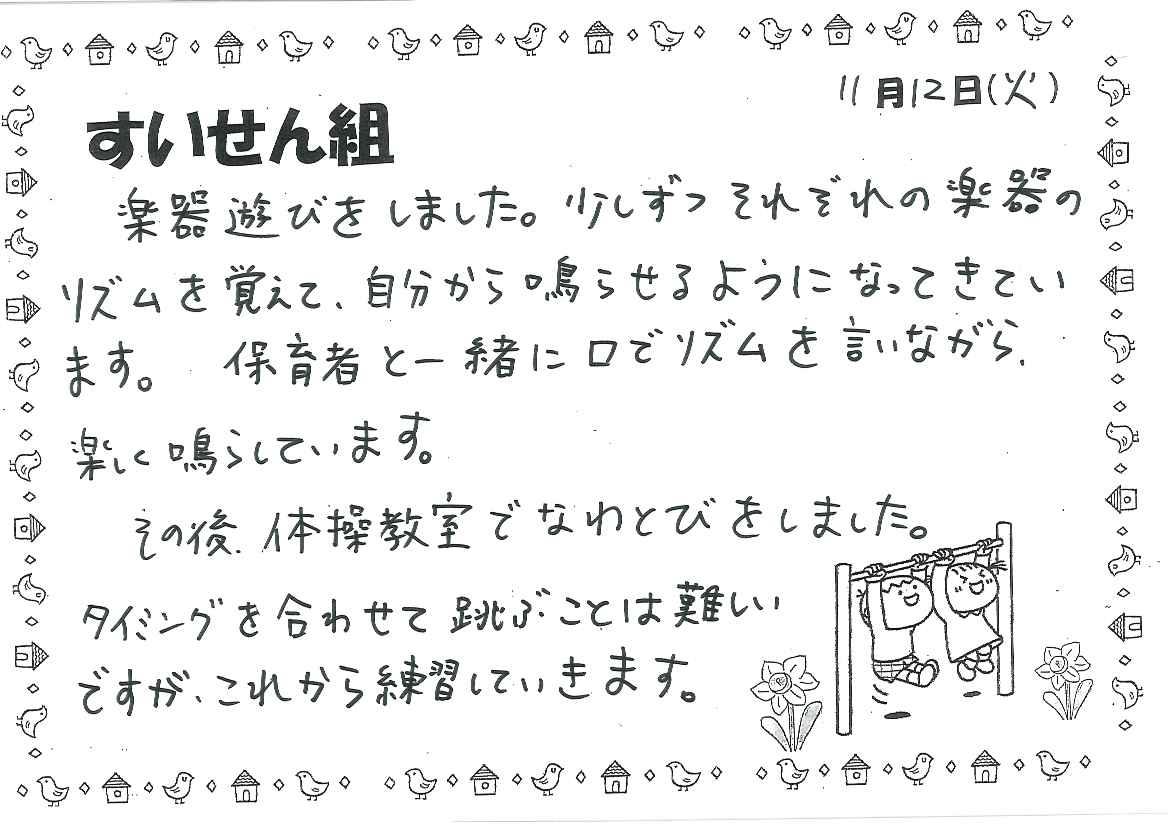 11月12日(火)
すいせん組
楽器遊びをしました。少しずつそれぞれの楽器の
リズムを覚えて、自分から鳴らせるようになってきてい
ます。 保育者と一緒に口でリズムを言いながら、
楽しく鳴らしています。
その後、体操教室でなわとびをしました。
タイミングを合わせて跳ぶことは難しい
ですが、これから練習していきます。